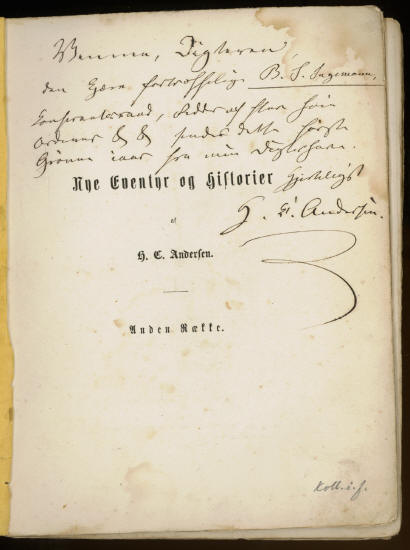 Vennen, Digteren,
den kjære fortræffelige B. S. Ingemann,
Conferentsraad, Ridder af flere høie
Ordener & & sendes dette første
Grønne iaar fra min Digterhave.
Nye Eventyr og Historier
Hjerteligst
H. C. Andersen.
af
H. C. Andersen.
Anden Række.
Koll. i. f.